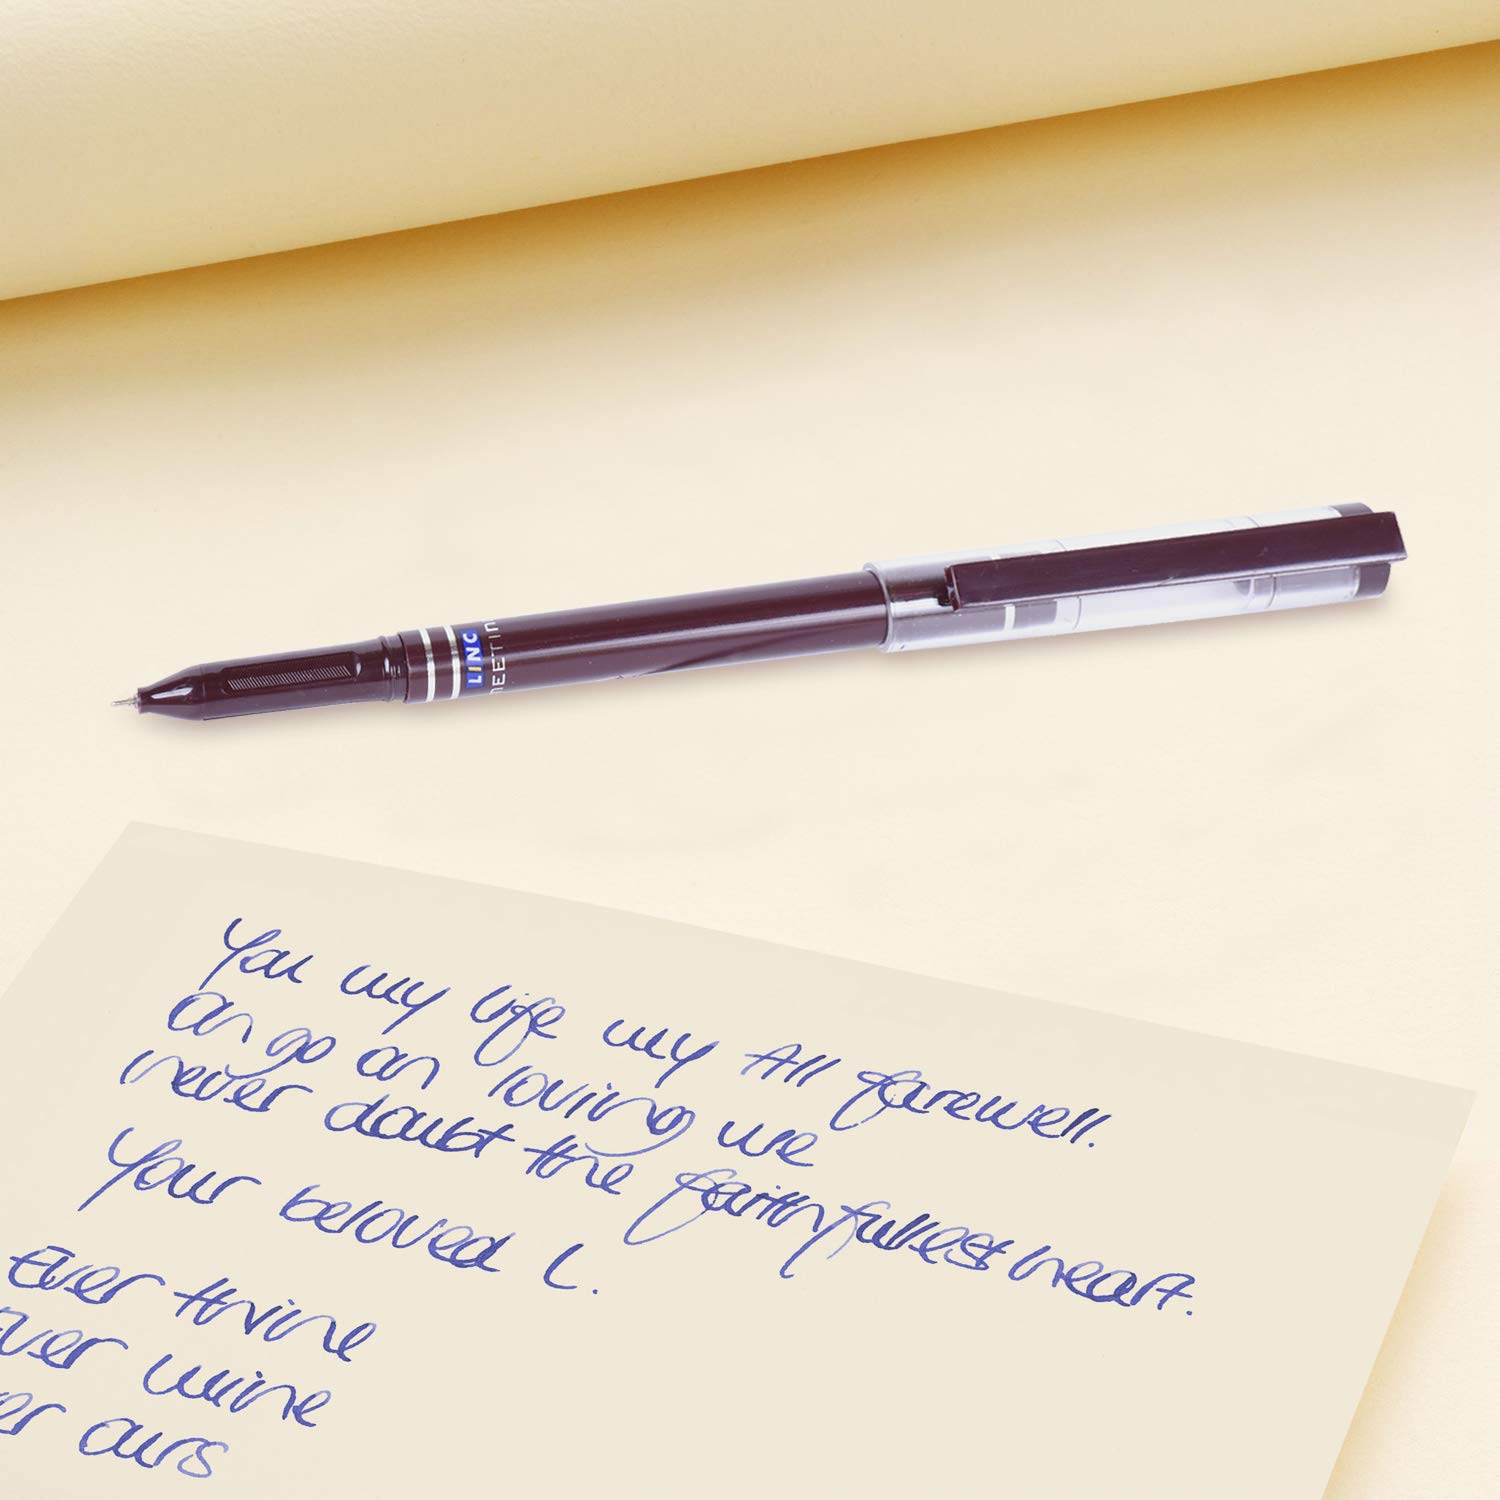 LINC
MEETIN
You my life my All farewell.
an go on loving me
never doubt the faithfullest heart.
Your beloved L.
Ever thine
Ever mine
er ours